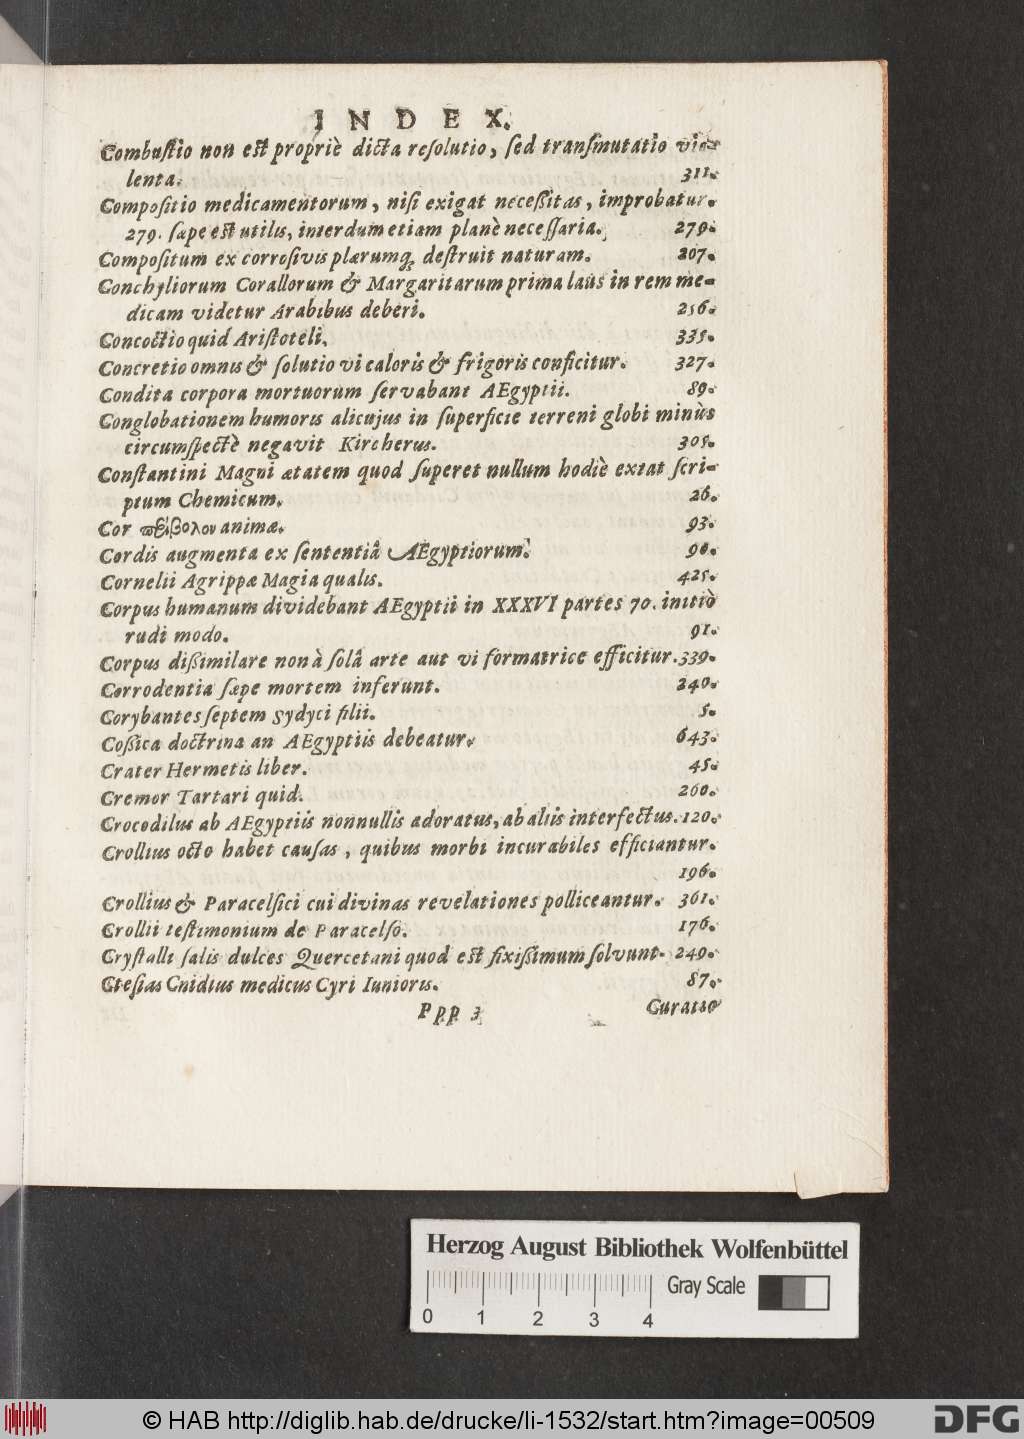 INDEX.
Combustio non est propriè dicta resolutio, sed transmutatio vio-
lenta. 311.
Compositio medicamentorum, nisi exigat necessitas, improbatur.
279. sæpe est utilis, interdum etiam planè necessaria. 279.
Compositum ex corrosivis plærumq; destruit naturam. 207.
Conchyliorum Corallorum & Margaritarum prima laus in rem me-
dicam videtur Arabibus deberi. 256.
Concoctio quid Aristoteli. 335.
Concretio omnis & solutio vi caloris & frigoris conficitur. 327.
Condita corpora mortuorum servabant AEgyptii. 89.
Conglobationem humoris alicujus in superficie terreni globi minùs
circumspectè negavit Kircherus. 305.
Constantini Magni ætatem quod superet nullum hodiè extat scri-
ptum Chemicum. 26.
Cor περίβολον animæ. 93.
Cordis augmenta ex sententiâ AEgyptiorum. 90.
Cornelii Agrippæ Magia qualis. 425.
Corpus humanum dividebant AEgyptii in XXXVI partes 70. initiò
rudi modo. 91.
Corpus dissimilare non à solâ arte aut vi formatrice efficitur. 339.
Corrodentia sæpe mortem inferunt. 240.
Corybantes septem Sydyci filii. 5.
Cossica doctrina an AEgyptiis debeatur. 643.
Crater Hermetis liber. 45.
Cremor Tartari quid. 260.
Crocodilus ab AEgyptiis nonnullis adoratus, ab aliis interfectus. 120.
Crollius octo habet causas, quibus morbi incurabiles efficiantur.
196.
Crollius & Paracelsici cui divinas revelationes polliceantur. 361.
Crollii testimonium de Paracelso. 176.
Crystalli salis dulces Quercetani quod est fixissimum solvunt. 249.
Ctesias Cnidius medicus Cyri Iunioris. 87.
Ppp 3 Curatio
Herzog August Bibliothek Wolfenbüttel
Gray Scale
0 1 2 3 4
© HAB http://diglib.hab.de/drucke/li-1532/start.htm?image=00509
DFG